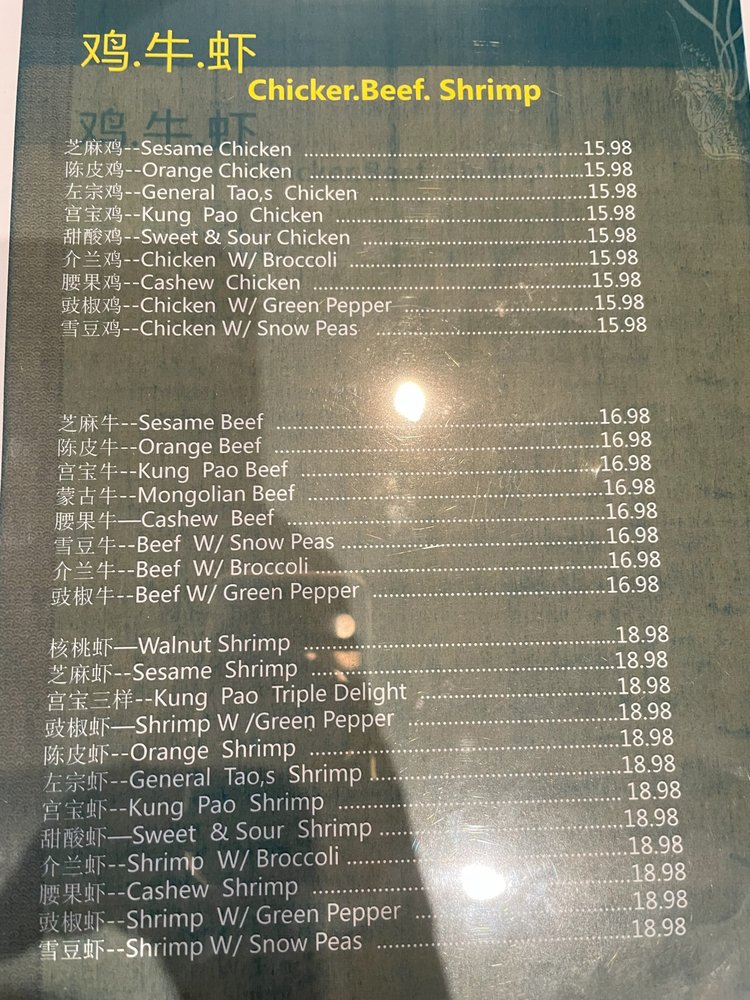 鸡.牛.虾
Chicker.Beef. Shrimp
芝麻鸡--Sesame Chicken ...............................................15.98
陈皮鸡--Orange Chicken ...............................................15.98
左宗鸡--General Tao,s Chicken ...................................15.98
宫宝鸡--Kung Pao Chicken .........................................15.98
甜酸鸡--Sweet & Sour Chicken ....................................15.98
介兰鸡--Chicken W/ Broccoli .......................................15.98
腰果鸡--Cashew Chicken ..............................................15.98
豉椒鸡--Chicken W/ Green Pepper ..............................15.98
雪豆鸡--Chicken W/ Snow Peas ...................................15.98
芝麻牛--Sesame Beef ....................................................16.98
陈皮牛--Orange Beef ....................................................16.98
宫宝牛--Kung Pao Beef ................................................16.98
蒙古牛--Mongolian Beef ..............................................16.98
腰果牛—Cashew Beef ..................................................16.98
雪豆牛--Beef W/ Snow Peas .........................................16.98
介兰牛--Beef W/ Broccoli..............................................16.98
豉椒牛--Beef W/ Green Pepper .....................................16.98
核桃虾—Walnut Shrimp ................................................18.98
芝麻虾--Sesame Shrimp ................................................18.98
宫宝三样--Kung Pao Triple Delight ...............................18.98
豉椒虾—Shrimp W /Green Pepper ................................18.98
陈皮虾--Orange Shrimp ................................................18.98
左宗虾--General Tao,s Shrimp .......................................18.98
宫宝虾--Kung Pao Shrimp .............................................18.98
甜酸虾—Sweet & Sour Shrimp ......................................18.98
介兰虾--Shrimp W/ Broccoli ..........................................18.98
腰果虾--Cashew Shrimp ................................................18.98
豉椒虾--Shrimp W/ Green Pepper .................................18.98
雪豆虾--Shrimp W/ Snow Peas ......................................18.98